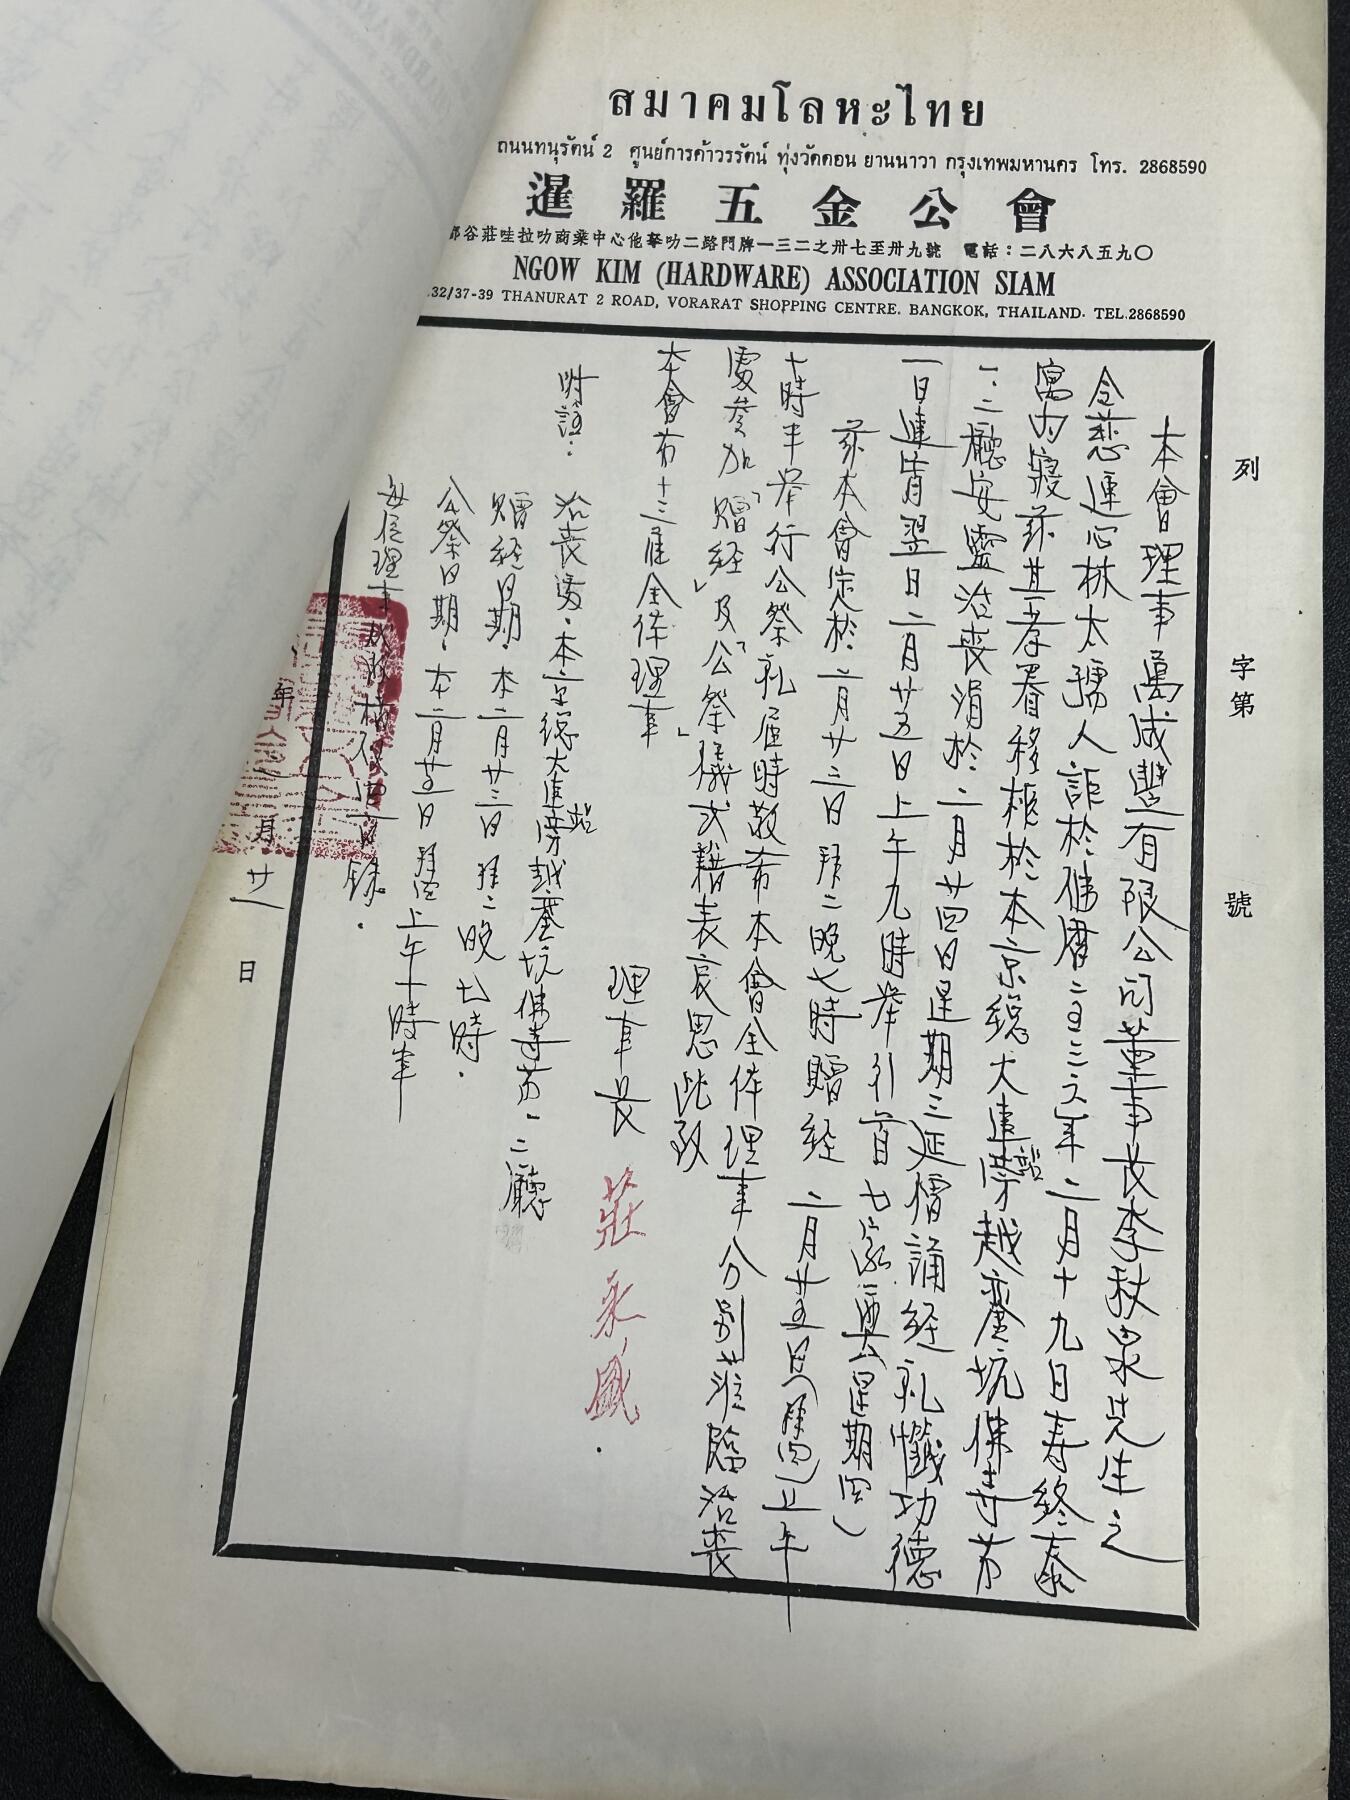 สมาคมโลหะไทย
ถนนทนุรัตน์ 2 ศูนย์การค้าวรรัตน์ ทุ่งวัดดอน ยานนาวา กรุงเทพมหานคร โทร. 2868590
暹羅五金公會
谷莊哇拉叻商業中心他拏叻二路門牌一三二之卅七至卅九號 電話：二八六八五九〇
NGOW KIM (HARDWARE) ASSOCIATION SIAM
.32/37-39 THANURAT 2 ROAD, VORARAT SHOPPING CENTRE. BANGKOK, THAILAND. TEL.2868590
列 字第 號
本會理事萬成豐有限公司董事長李秋泉先生之
令慈連心林太孺人詎於佛曆二五三六年二月十九日壽終泰
寓內寢茲其孝眷移柩於本京總大達站旁越層坑佛寺第
一．二廳安靈治喪涓於二月廿四日星期三延僧誦經礼懺功德
一日連宵翌日二月廿五日上午九時舉引首七發輿（星期四）
茲本會定於二月廿三日拜二晚七時贈經 二月廿五日（拜四）上午
十時半舉行公祭礼屆時敬希本會全体理事分別蒞臨治喪
處參加「贈經」及「公祭」儀式藉表哀思此致
本會第十三屆全体理事
理事長 莊永盛．
附註：
治喪處．本京總大達站旁越層坑佛寺第一二廳
贈經日期．本二月廿三日拜二晚七時．
公祭日期．本二月廿五日拜四上午十時半
每位理事
年 二月廿 日